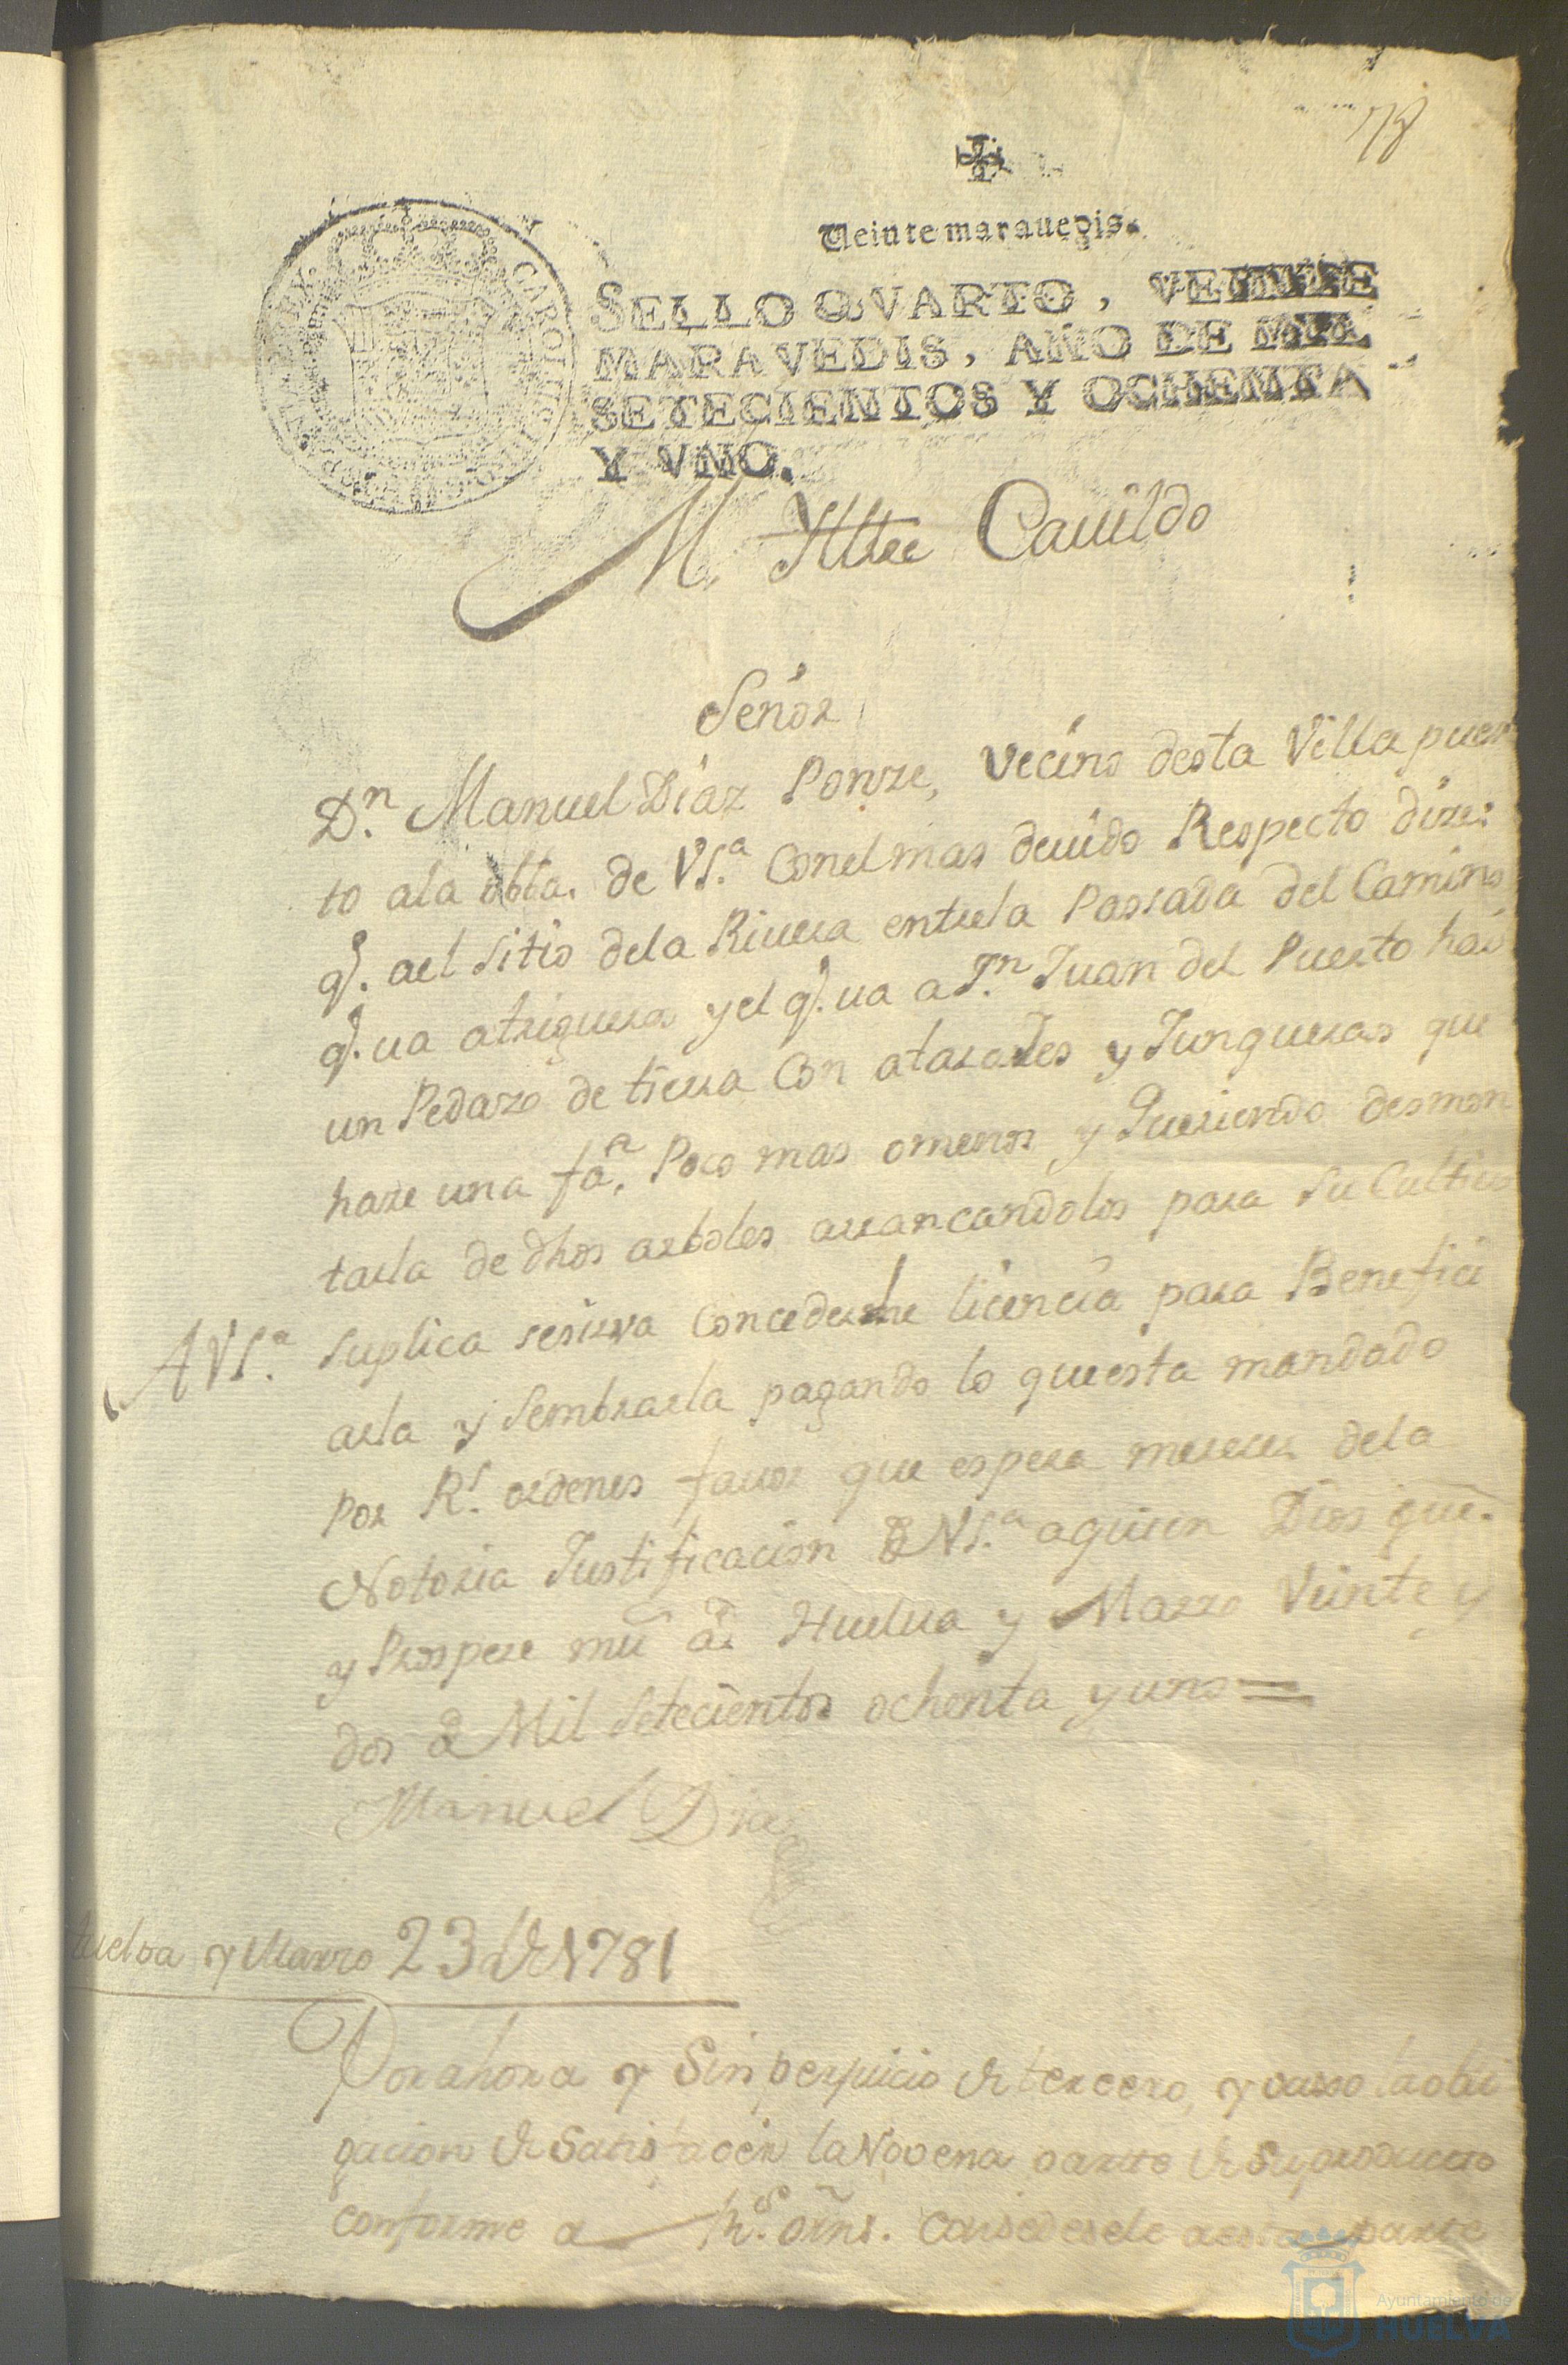 78
Veinte maravedis.
SELLO QVARTO, VEINTE
MARAVEDIS, AÑO DE MIL
SETECIENTOS Y OCHENTA
Y VNO.
M. Yltre Cauildo
Señor
D.n Manuel Diaz Ponze, Vecino desta Villa pues
to ala obba. de VS.a Conel mas deuido Respecto dize:
q.e ael sitio dela Riuera entrela Passada del Camino
q.e ua atrigueros y el q.e ua a S.n Juan del Puerto hai
un Pedazo de tierra Con atarajes y Junqueras que
haze una fa.a Poco mas omenos y Queriendo desmon
tarla de dhos arboles arrancandolos para su Cultiuo
AVS.a Suplica sesirva Concederle licencia para Benefici
arla y Sembrarla pagando lo questa mandado
por R.s ordenes fauor que espera merezer dela
Notoria Justificacion de VS.a aquien Dios gue.
y Prospere mu.s a.s Huelua y Marzo Veinte y
dos de Mil Setecientos ochenta y uno=
Manuel Diaz
Huelva y Marzo 23 de 1781
Por ahora y Sin perjuicio de tercero, y vaxo la obli
gacion de Satisfacer la Novena parte de Su producto
conforme a R.s ôrns. Consedesele a esta parte
Ayuntamiento de
HUELVA